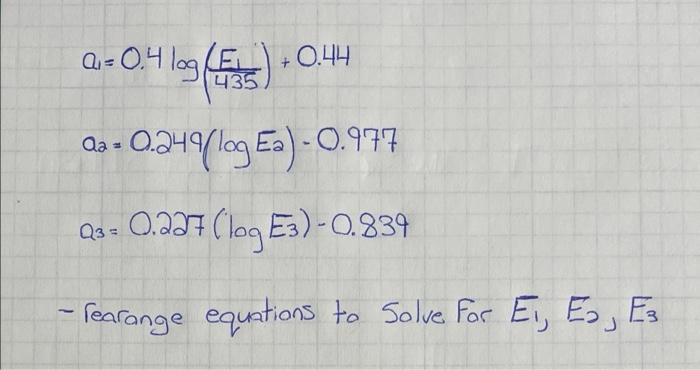 a1 = 0.4 log(E1/435) + 0.44
a2 = 0.249(log E2) - 0.977
a3 = 0.227 (log E3) - 0.839
- rearange equations to Solve For E1, E2, E3